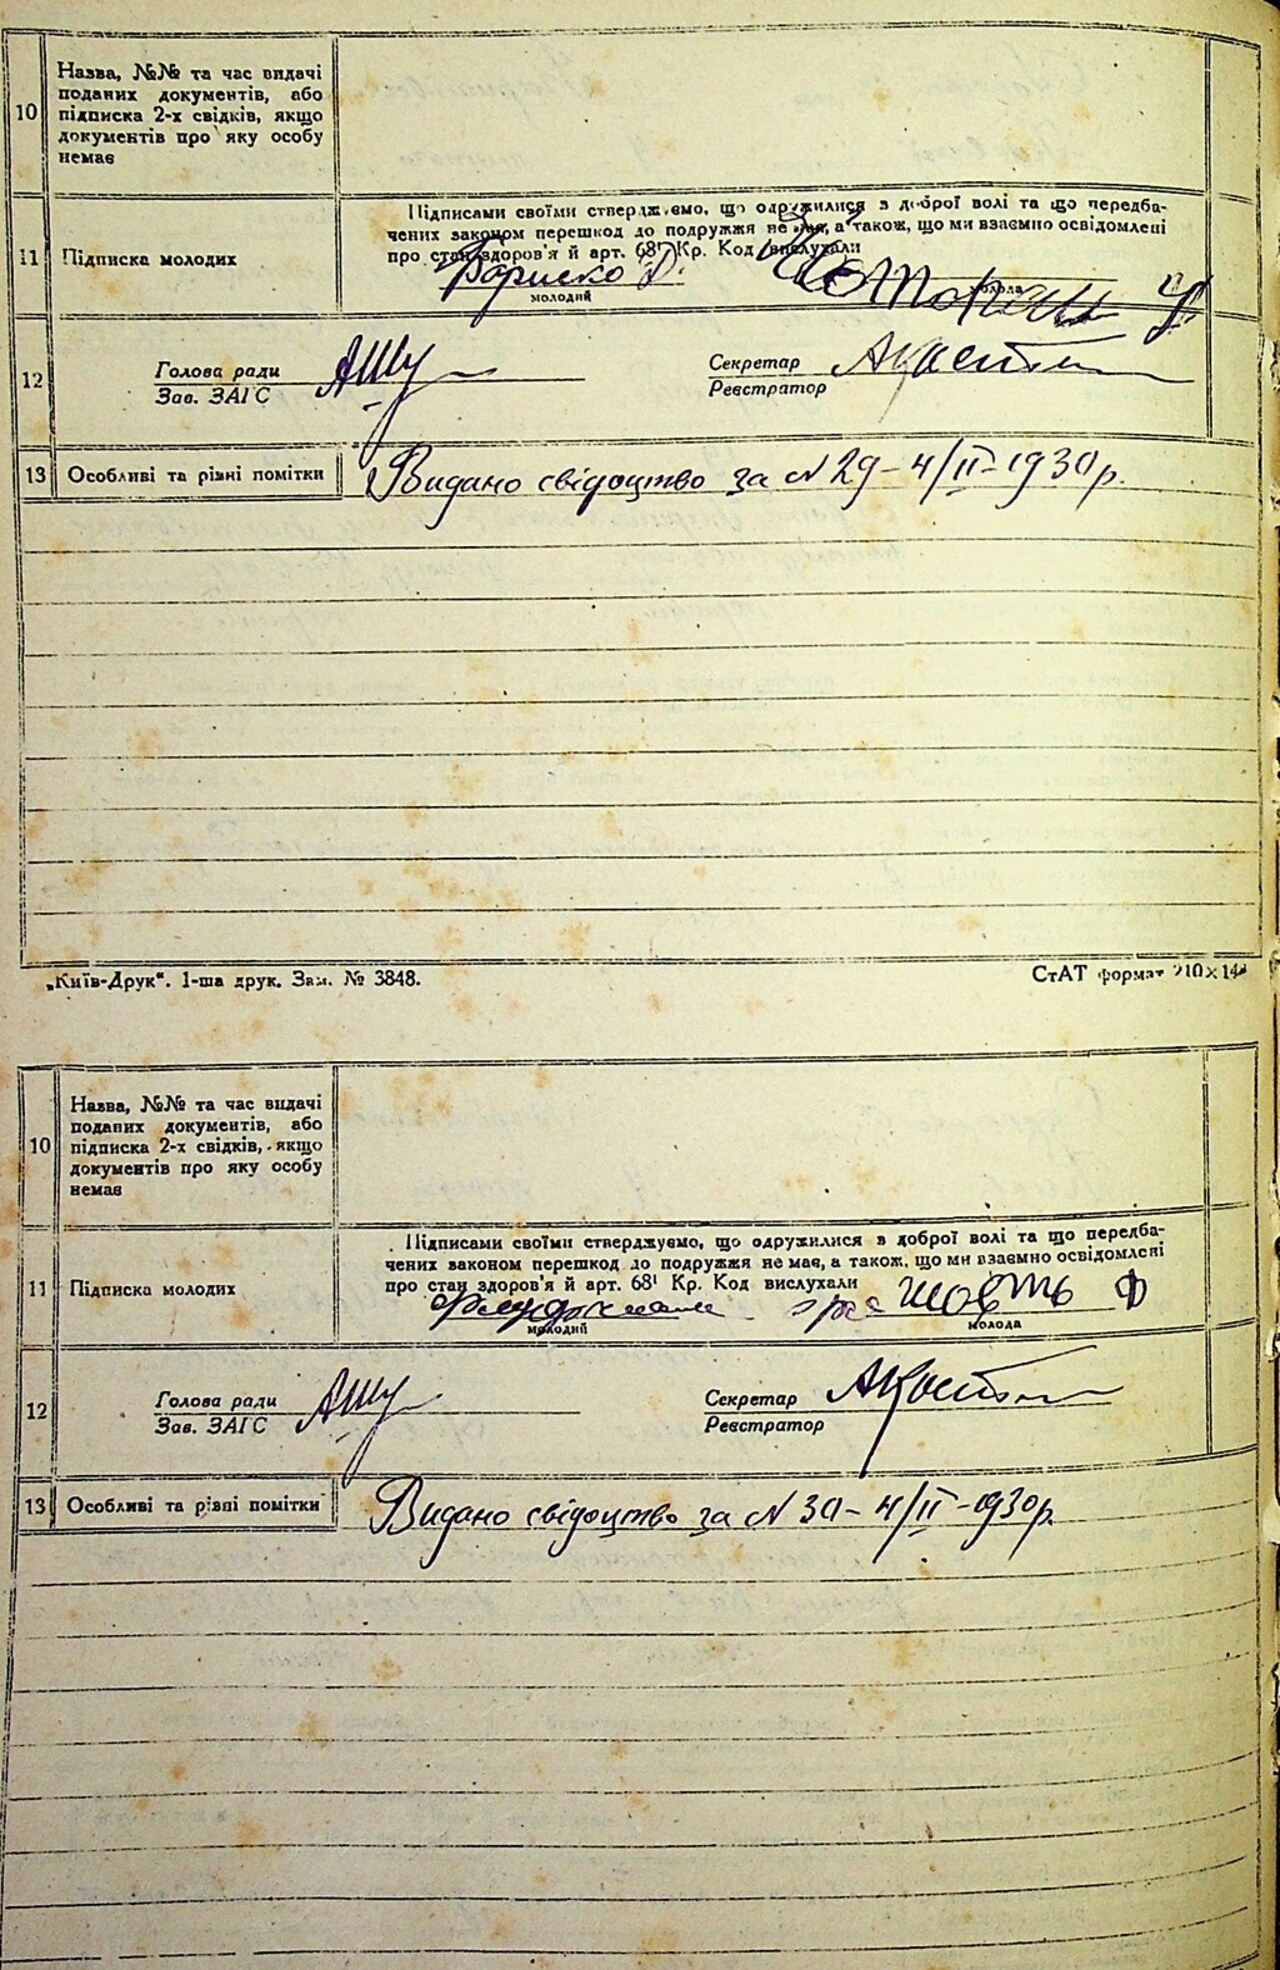 10
Назва, №№ та час видачі
поданих документів, або
підписка 2-х свідків, якщо
документів про яку особу
немає
11
Підписка молодих
Підписами своїми стверджуємо, що одружилися з доброї волі та що передба-
чених законом перешкод до подружжя не має, а також, що ми взаємно освідомлені
про стан здоров'я й арт. 68¹ Кр. Код вислухали
Бориско Д.
молодий
молода
12
Голова ради
Зав. ЗАГС
Секретар
Реєстратор
13
Особливі та різні помітки
Видано свідоцтво за N 29 – 4/II – 1930 р.
„Київ-Друк“. 1-ша друк. Зам. № 3848.
СтАТ формат 210×148
10
Назва, №№ та час видачі
поданих документів, або
підписка 2-х свідків, якщо
документів про яку особу
немає
11
Підписка молодих
Підписами своїми стверджуємо, що одружилися з доброї волі та що передба-
чених законом перешкод до подружжя не має, а також, що ми взаємно освідомлені
про стан здоров'я й арт. 68¹ Кр. Код вислухали
молодий
молода
12
Голова ради
Зав. ЗАГС
Секретар
Реєстратор
13
Особливі та різні помітки
Видано свідоцтво за N 30 – 4/II – 1930 р.